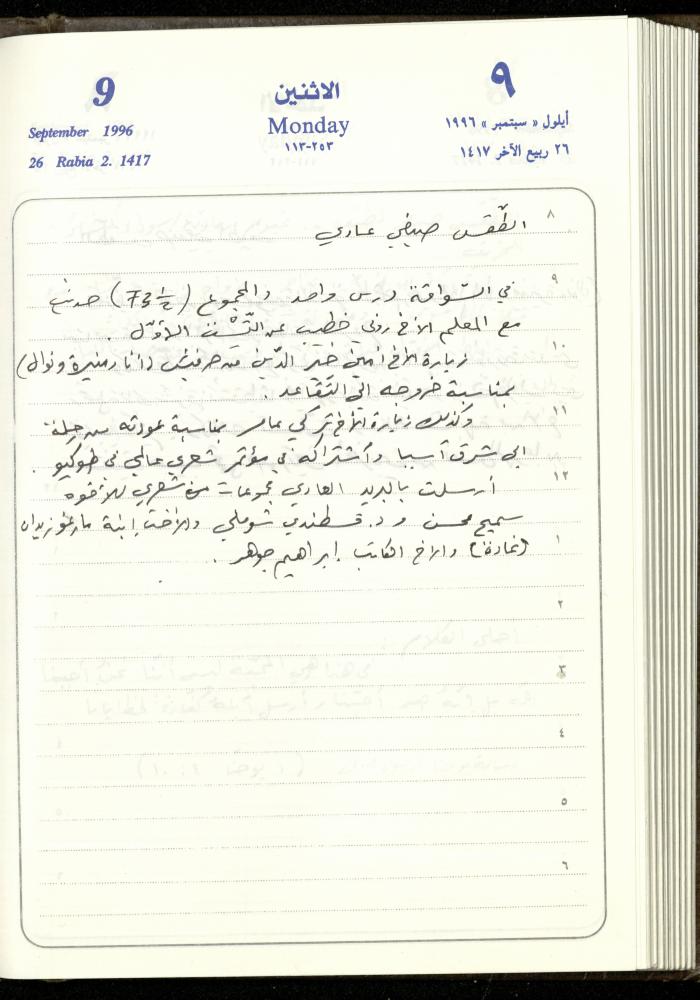 9
الاثنين
٩
September 1996
Monday
أيلول « سبتمبر » ١٩٩٦
26 Rabia 2. 1417
٢٥٣-١١٣
٢٦ ربيع الآخر ١٤١٧
٨
الطّقس صيفي عادي
٩
في السّواقة درس واحد والمجموع (73½) حديث
مع المعلم الأخ روني خطيب عن الأوّل .
١٠
زيارة الأخ أمين خير الدّين من حرفيش (أنا ومنيرة ونوال)
بمناسبة خروجه الى التّقاعد .
١١
وكذلك زيارة الأخ تركي عامر بمناسبة عودته من رحلة
الى شرق آسيا وأشتراكه في مؤتمر شعري عالمي في طوكيو .
١٢
أرسلت بالبريد العادي مجموعات من شعري للأخوة
سميح محسن و د. قسطندي شوملي والأخت إبنة
١
(غادة) والاخ الكاتب إبراهيم جوهر .
٢
٣
٤
٥
٦